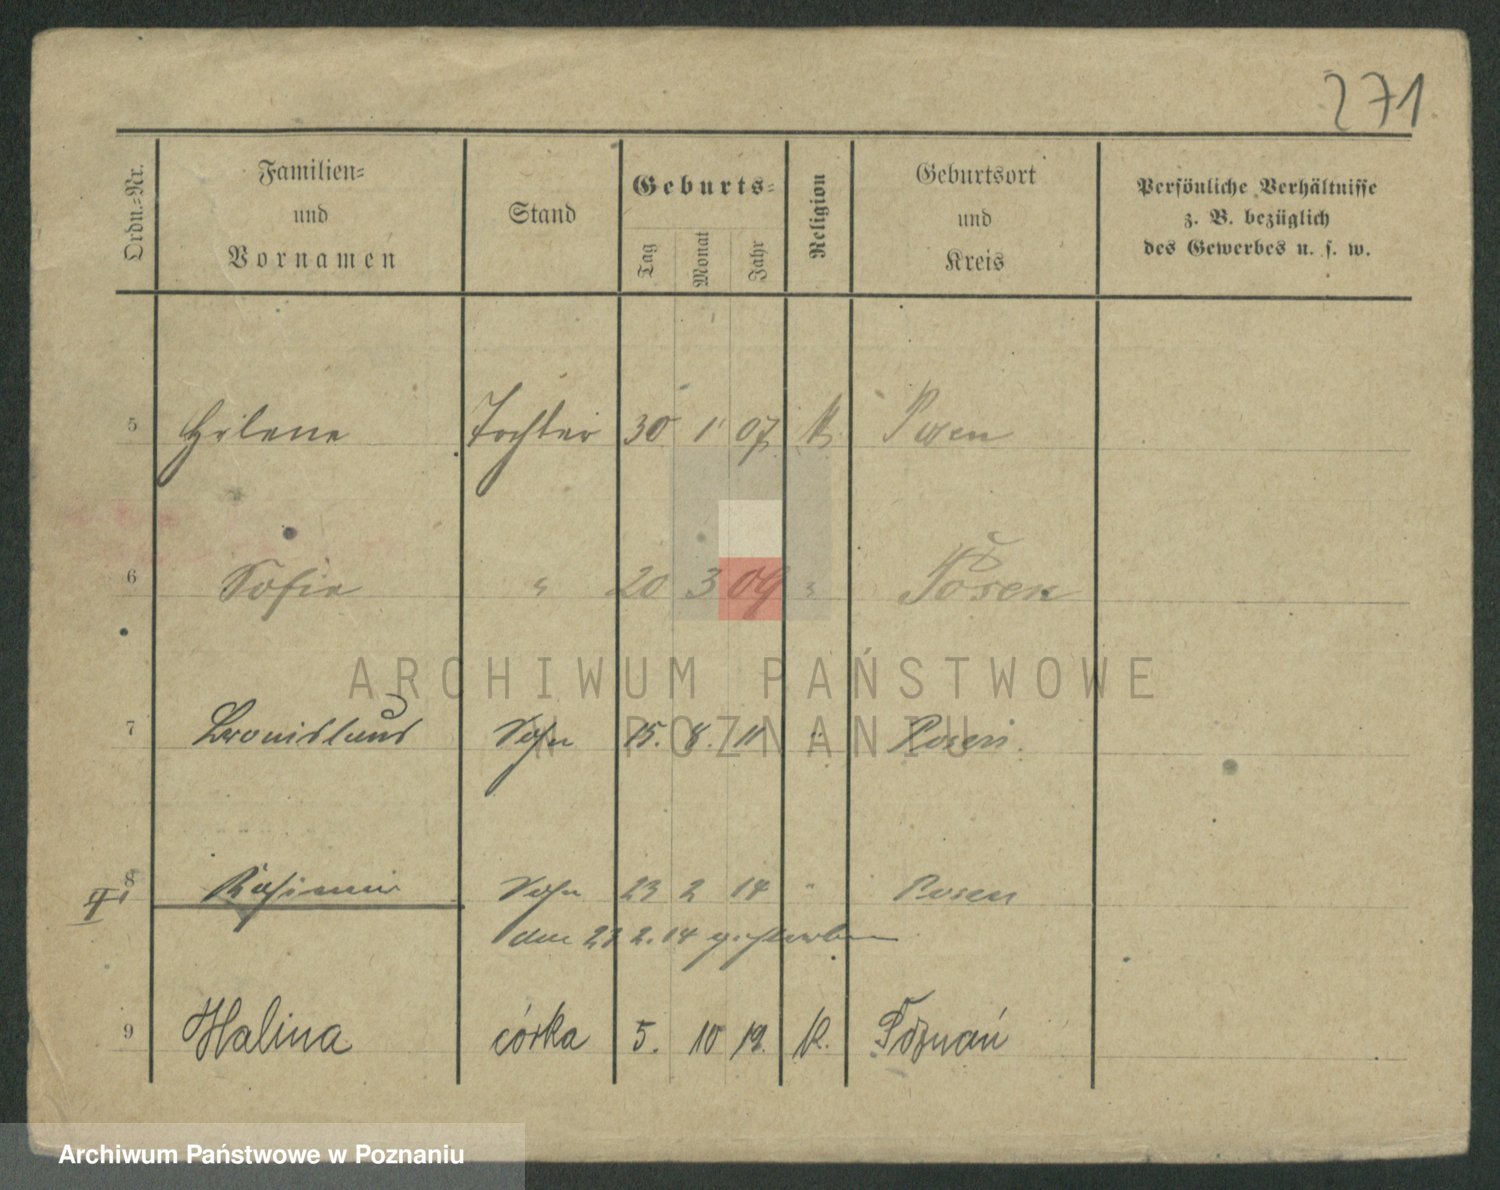 271
Ordn.-Nr.
Familien-
und
Vornamen
Stand
Geburts-
Tag
Monat
Jahr
Religion
Geburtsort
und
Kreis
Persönliche Verhältnisse
z. B. bezüglich
des Gewerbes u. s. w.
5 Helene Tochter 30 1 07 K Posen
6 Sofie " 20 3 09 " Posen
ARCHIWUM PAŃSTWOWE
W POZNANIU
7 Bronislaus Sohn 15. 8. 11 " Posen.
8 Kasimir Sohn 23 2 14 " Posen
den 2. 14 gestorben
9 Halina córka 5. 10 19. K. Poznań
Archiwum Państwowe w Poznaniu